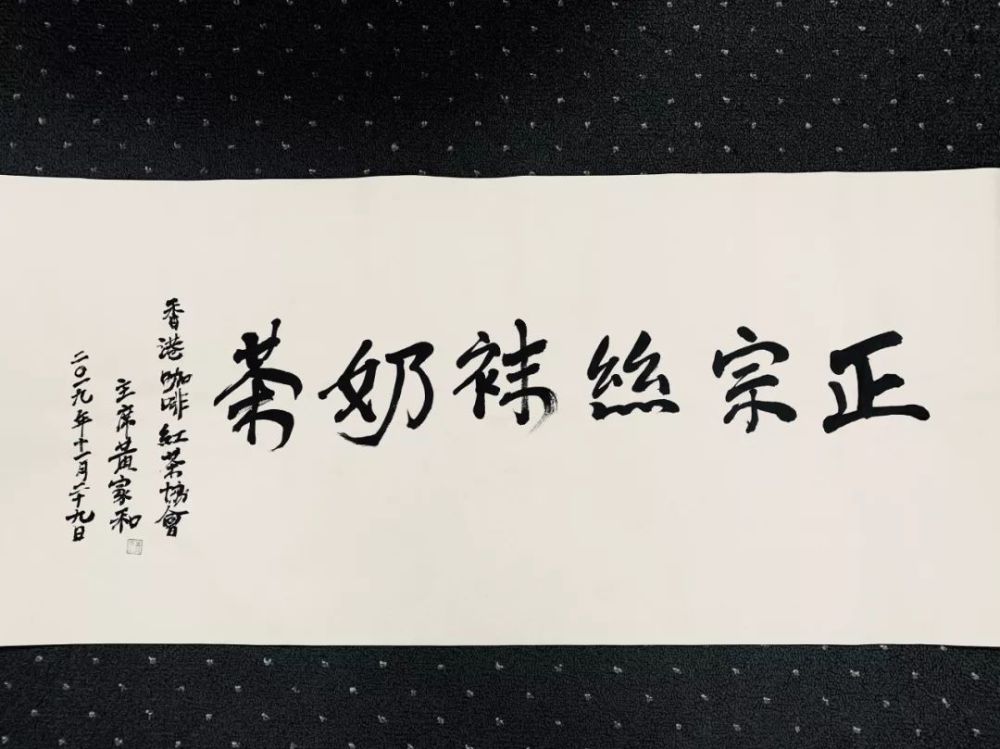 正宗絲袜奶茶
香港咖啡紅茶協會
主席黃家和
二〇一九年十一月二十九日